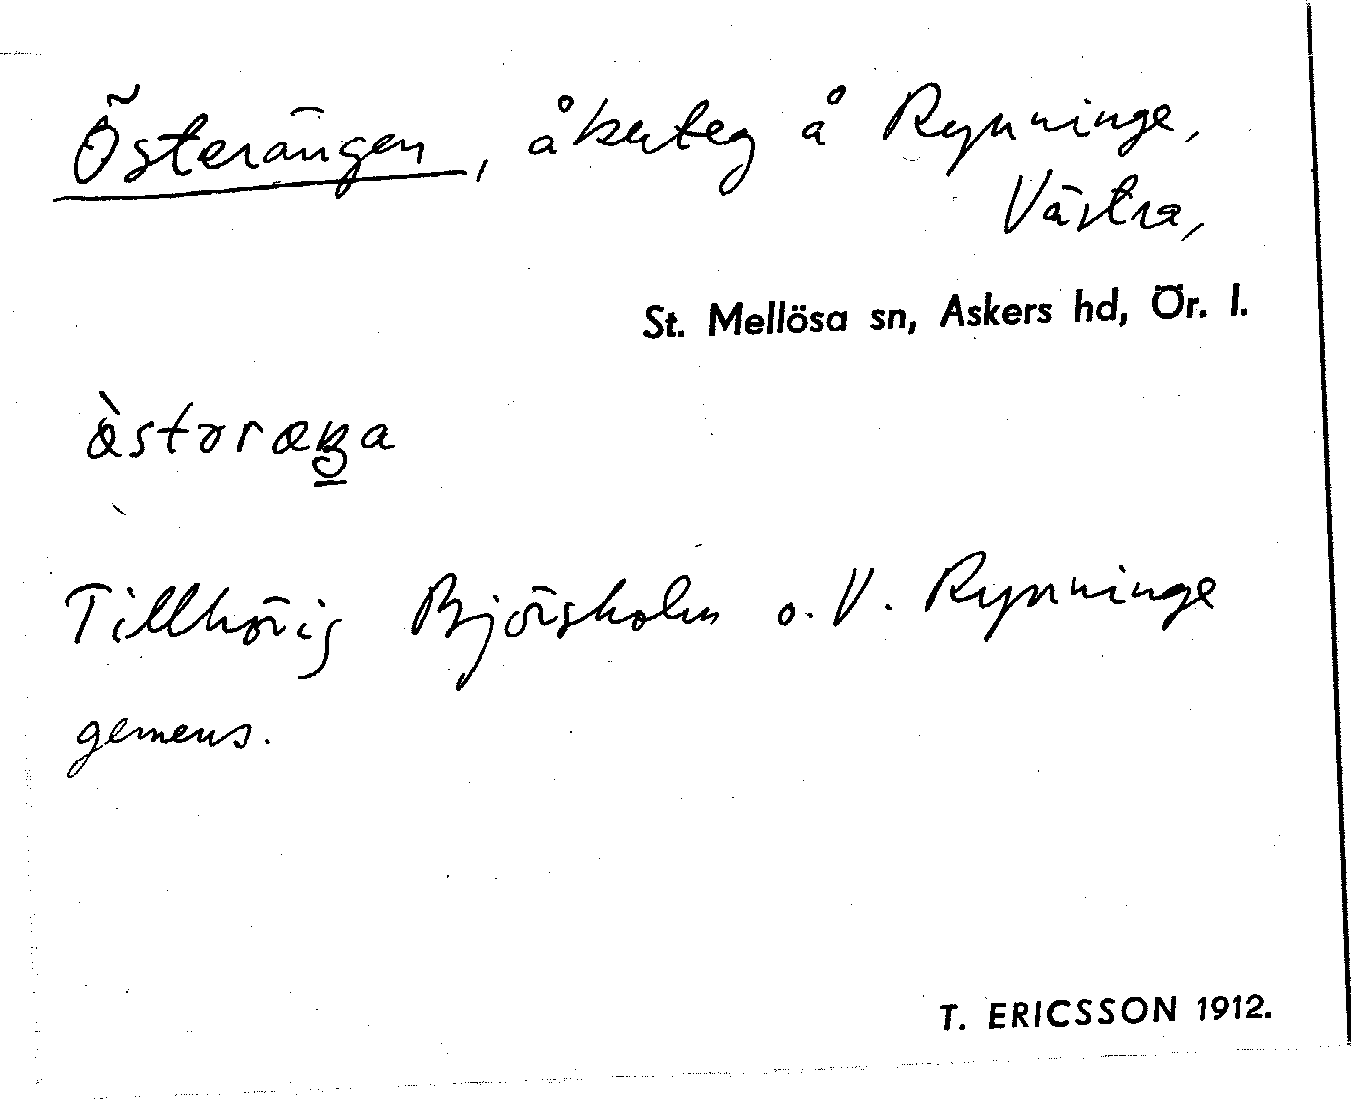 Österängen, åkerteg å Rynninge,
Västra,
St. Mellösa sn, Askers hd, Ör. l.
Tillhörig Björsholm o. V. Rynninge
gemens.
T. ERICSSON 1912.